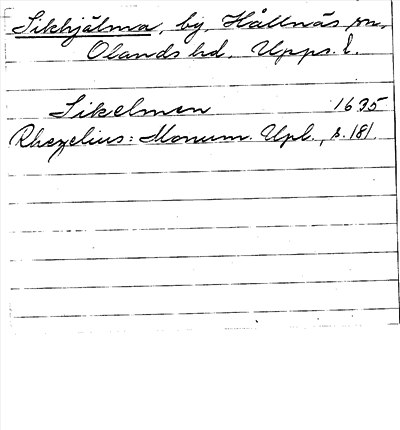 Sikhjälma, by, Hållnäs sn,
Olands hd, Upps. l.
Sikelmen 1635
Rhezelius: Monum. Upl., s. 181.